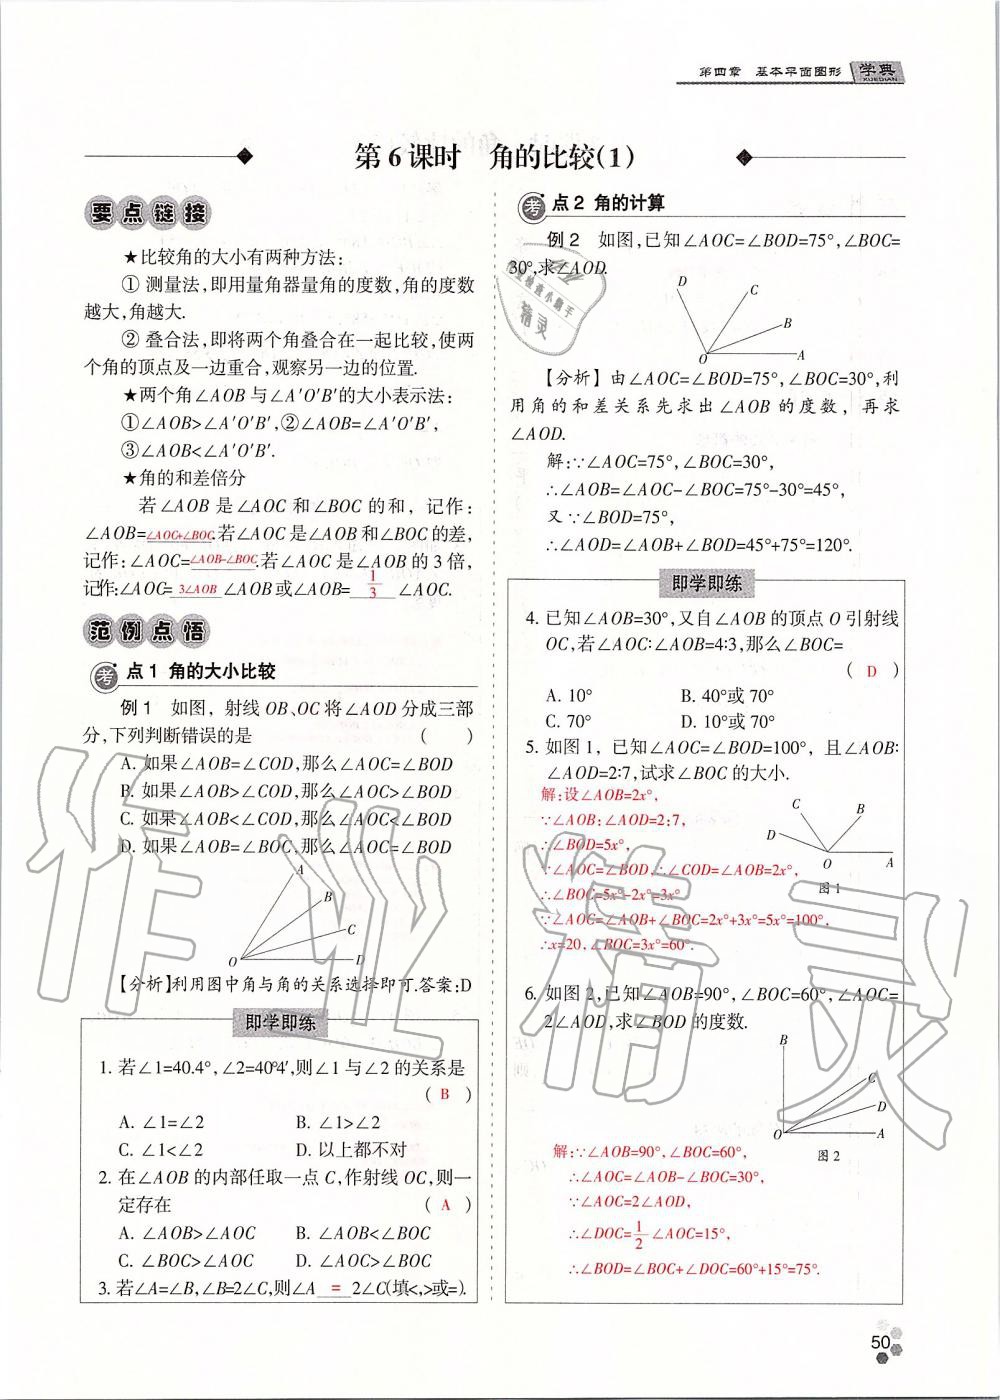 第四章 基本平面图形 学典
XUEDIAN
第6课时 角的比较(1)
要点链接
★比较角的大小有两种方法:
① 测量法,即用量角器量角的度数,角的度数
越大,角越大.
② 叠合法,即将两个角叠合在一起比较,使两
个角的顶点及一边重合,观察另一边的位置.
★两个角∠AOB与∠A′O′B′的大小表示法:
①∠AOB>∠A′O′B′,②∠AOB=∠A′O′B′,
③∠AOB<∠A′O′B′.
★角的和差倍分
若∠AOB是∠AOC和∠BOC的和,记作:
∠AOB=∠AOC+∠BOC.若∠AOC是∠AOB和∠BOC的差,
记作:∠AOC=∠AOB-∠BOC.若∠AOC是∠AOB的3倍,
记作:∠AOC= 3∠AOB ∠AOB或∠AOB= 1/3 ∠AOC.
范例点悟
考点1 角的大小比较
例1 如图,射线OB、OC将∠AOD分成三部
分,下列判断错误的是 ( )
A. 如果∠AOB=∠COD,那么∠AOC=∠BOD
B. 如果∠AOB>∠COD,那么∠AOC>∠BOD
C. 如果∠AOB<∠COD,那么∠AOC<∠BOD
D. 如果∠AOB=∠BOC,那么∠AOC=∠BOD
A
B
C
O D
【分析】利用图中角与角的关系选择即可.答案:D
即学即练
1. 若∠1=40.4°,∠2=40°4′,则∠1与∠2的关系是
( B )
A. ∠1=∠2 B. ∠1>∠2
C. ∠1<∠2 D. 以上都不对
2. 在∠AOB的内部任取一点C,作射线OC,则一
定存在 ( A )
A. ∠AOB>∠AOC B. ∠AOB<∠BOC
C. ∠BOC>∠AOC D. ∠AOC>∠BOC
3. 若∠A=∠B,∠B=2∠C,则∠A = 2∠C(填<,>或=).
考点2 角的计算
例2 如图,已知∠AOC=∠BOD=75°,∠BOC=
30°,求∠AOD.
D
C
B
O A
【分析】由∠AOC=∠BOD=75°,∠BOC=30°,利
用角的和差关系先求出∠AOB的度数,再求
∠AOD.
解:∵∠AOC=75°,∠BOC=30°,
∴∠AOB=∠AOC-∠BOC=75°-30°=45°,
又∵∠BOD=75°,
∴∠AOD=∠AOB+∠BOD=45°+75°=120°.
即学即练
4. 已知∠AOB=30°,又自∠AOB的顶点O引射线
OC,若∠AOC∶∠AOB=4∶3,那么∠BOC=
( D )
A. 10° B. 40°或70°
C. 70° D. 10°或70°
5. 如图1,已知∠AOC=∠BOD=100°,且∠AOB∶
∠AOD=2∶7,试求∠BOC的大小.
解:设∠AOB=2x°,
∵∠AOB:∠AOD=2:7,
∴∠BOD=5x°,
∵∠AOC=∠BOD,∴∠COD=∠AOB=2x°,
∴∠BOC=5x°-2x°=3x°
∵∠AOC=∠AOB+∠BOC=2x°+3x°=5x°=100°,
∴x=20,∠BOC=3x°=60°.
C B
D
O A
图1
6. 如图2,已知∠AOB=90°,∠BOC=60°,∠AOC=
2∠AOD,求∠BOD的度数.
B
C
D
O A
图2
解:∵∠AOB=90°,∠BOC=60°,
∴∠AOC=∠AOB-∠BOC=30°,
∵∠AOC=2∠AOD,
∴∠DOC=1/2∠AOC=15°,
∴∠BOD=∠BOC+∠DOC=60°+15°=75°.
50
作业精灵